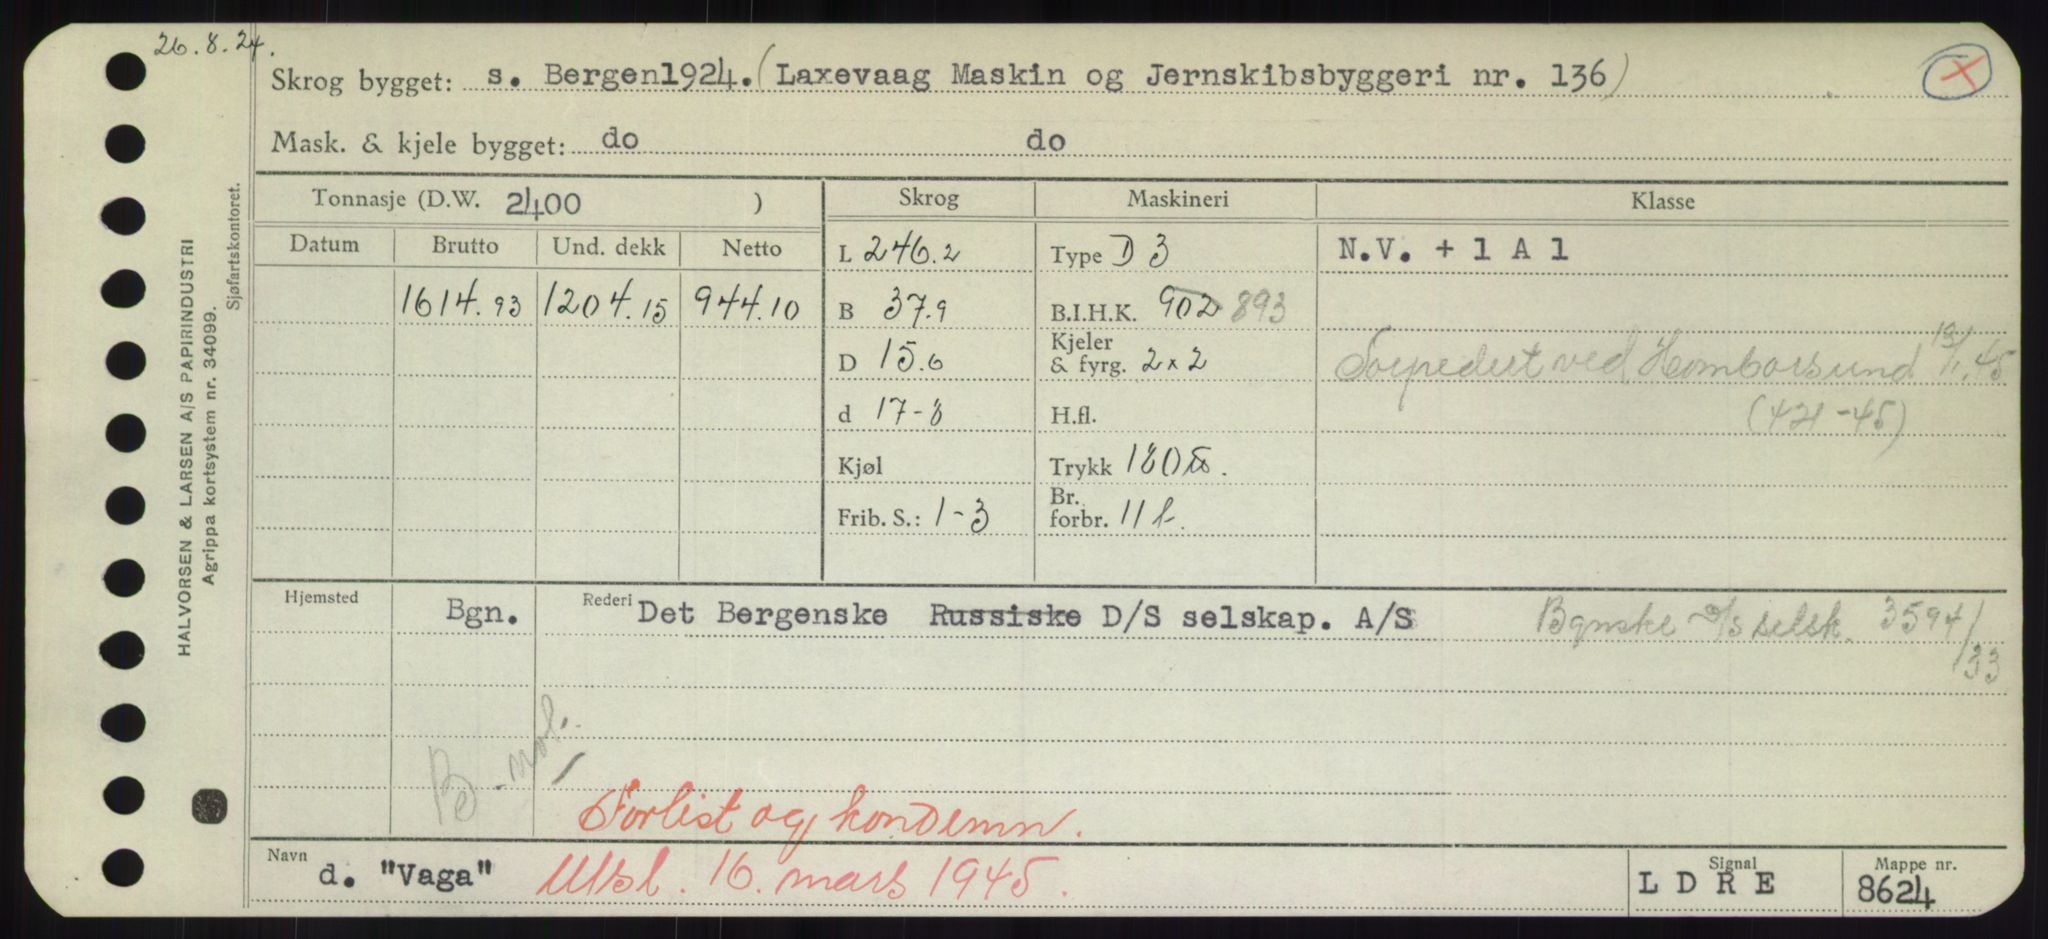 26.8.24.
Skrog bygget: s. Bergen1924. (Laxevaag Maskin og Jernskibsbyggeri nr. 136)
X
Mask. & kjele bygget: do do
Tonnasje (D.W. 2400 ) Skrog Maskineri Klasse
Datum Brutto Und. dekk Netto L 246.2 Type D 3 N.V. + 1 A 1
1614.93 1204.15 944.10 B 37.9 B.I.H.K. 902 893
D 15.6 Kjeler & fyrg. 2x2 Torpedert ved Homborsund 13/1.45
d 17-8 H.fl. (421-45)
Kjøl Trykk 180
Frib. S.: 1-3 Br. forbr. 11 t.
Hjemsted Bgn. Rederi Det Bergenske Russiske D/S selskap. A/S Bgnske D/S selsk. 3594/33
Be
Forlist og kondemn.
Navn d. "Vaga" Utsl. 16. mars 1945. Signal L D R E Mappe nr. 8624
HALVORSEN & LARSEN A/S PAPIRINDUSTRI
Agrippa kortsystem nr. 34099.
Sjøfartskontoret.